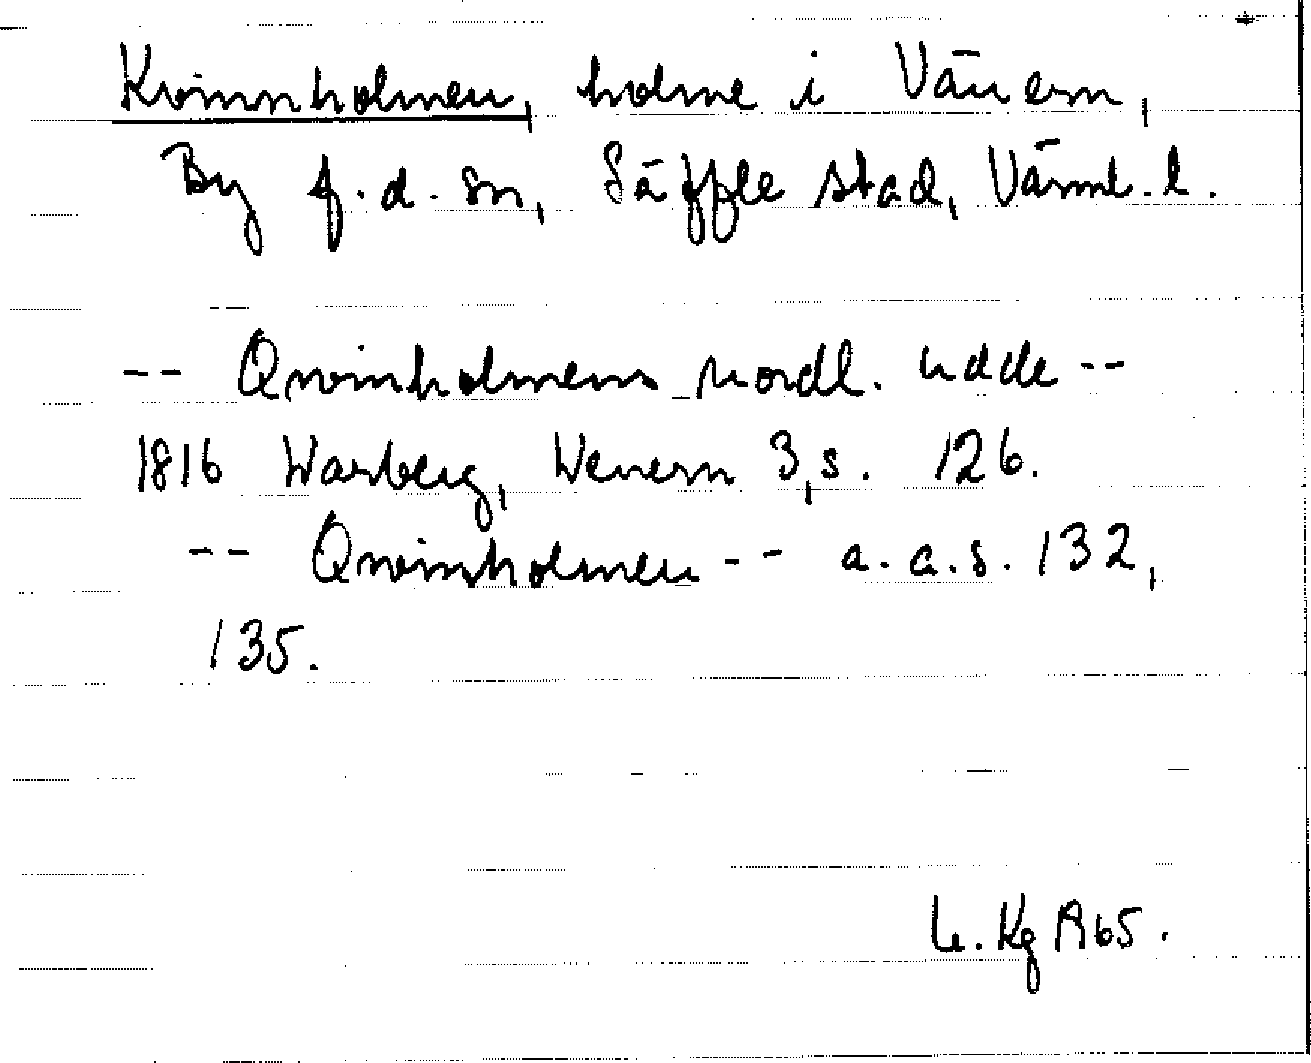 Kvinnholmen, holme i Vänern,
By f.d. sn, Säffle stad, Värml. l.
-- Qvinholmens nordl. udde --
1816 Warberg, Wenern 3, s. 126.
-- Qvinholmen -- a.a.s. 132,
135.
Kg A65.